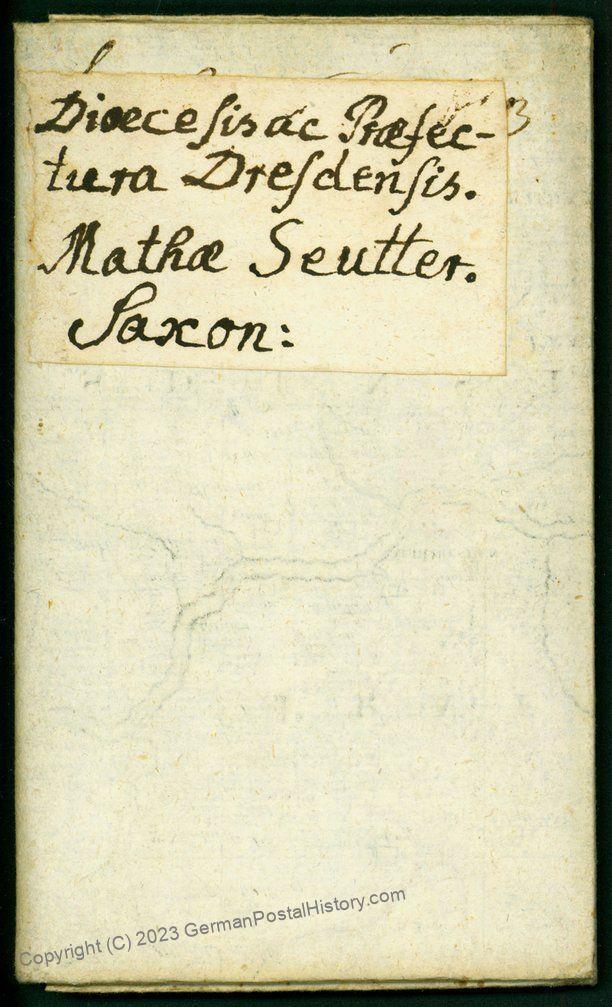 3
Dioecesis ac Præfec-
tura Dresdensis.
Mathæ Seutter.
Saxon:
Copyright (C) 2023 GermanPostalHistory.com